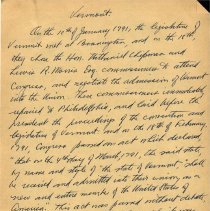 Vermont.
On the 10th of January 1791, the legislature of
Vermont met at Bennington, and on the 18th,
they chose the Hon. Nathaniel Chipman and
Lewis R. Morris Esq. commissioners to attend
Congress, and negotiate the admission of Vermont
into the Union. These commissioners immediately
repaired to Philadelphia, and laid before the
President the proceedings of the convention and
legislature of Vermont and on the 18th of February
1791, Congress passed an act which declared
"that on the 4th day of March 1791, the said state,
by name and style of "the state of Vermont" shall
be received and admitted into their union, as a
new and entire member of the United States of
America". This act was passed without debate,